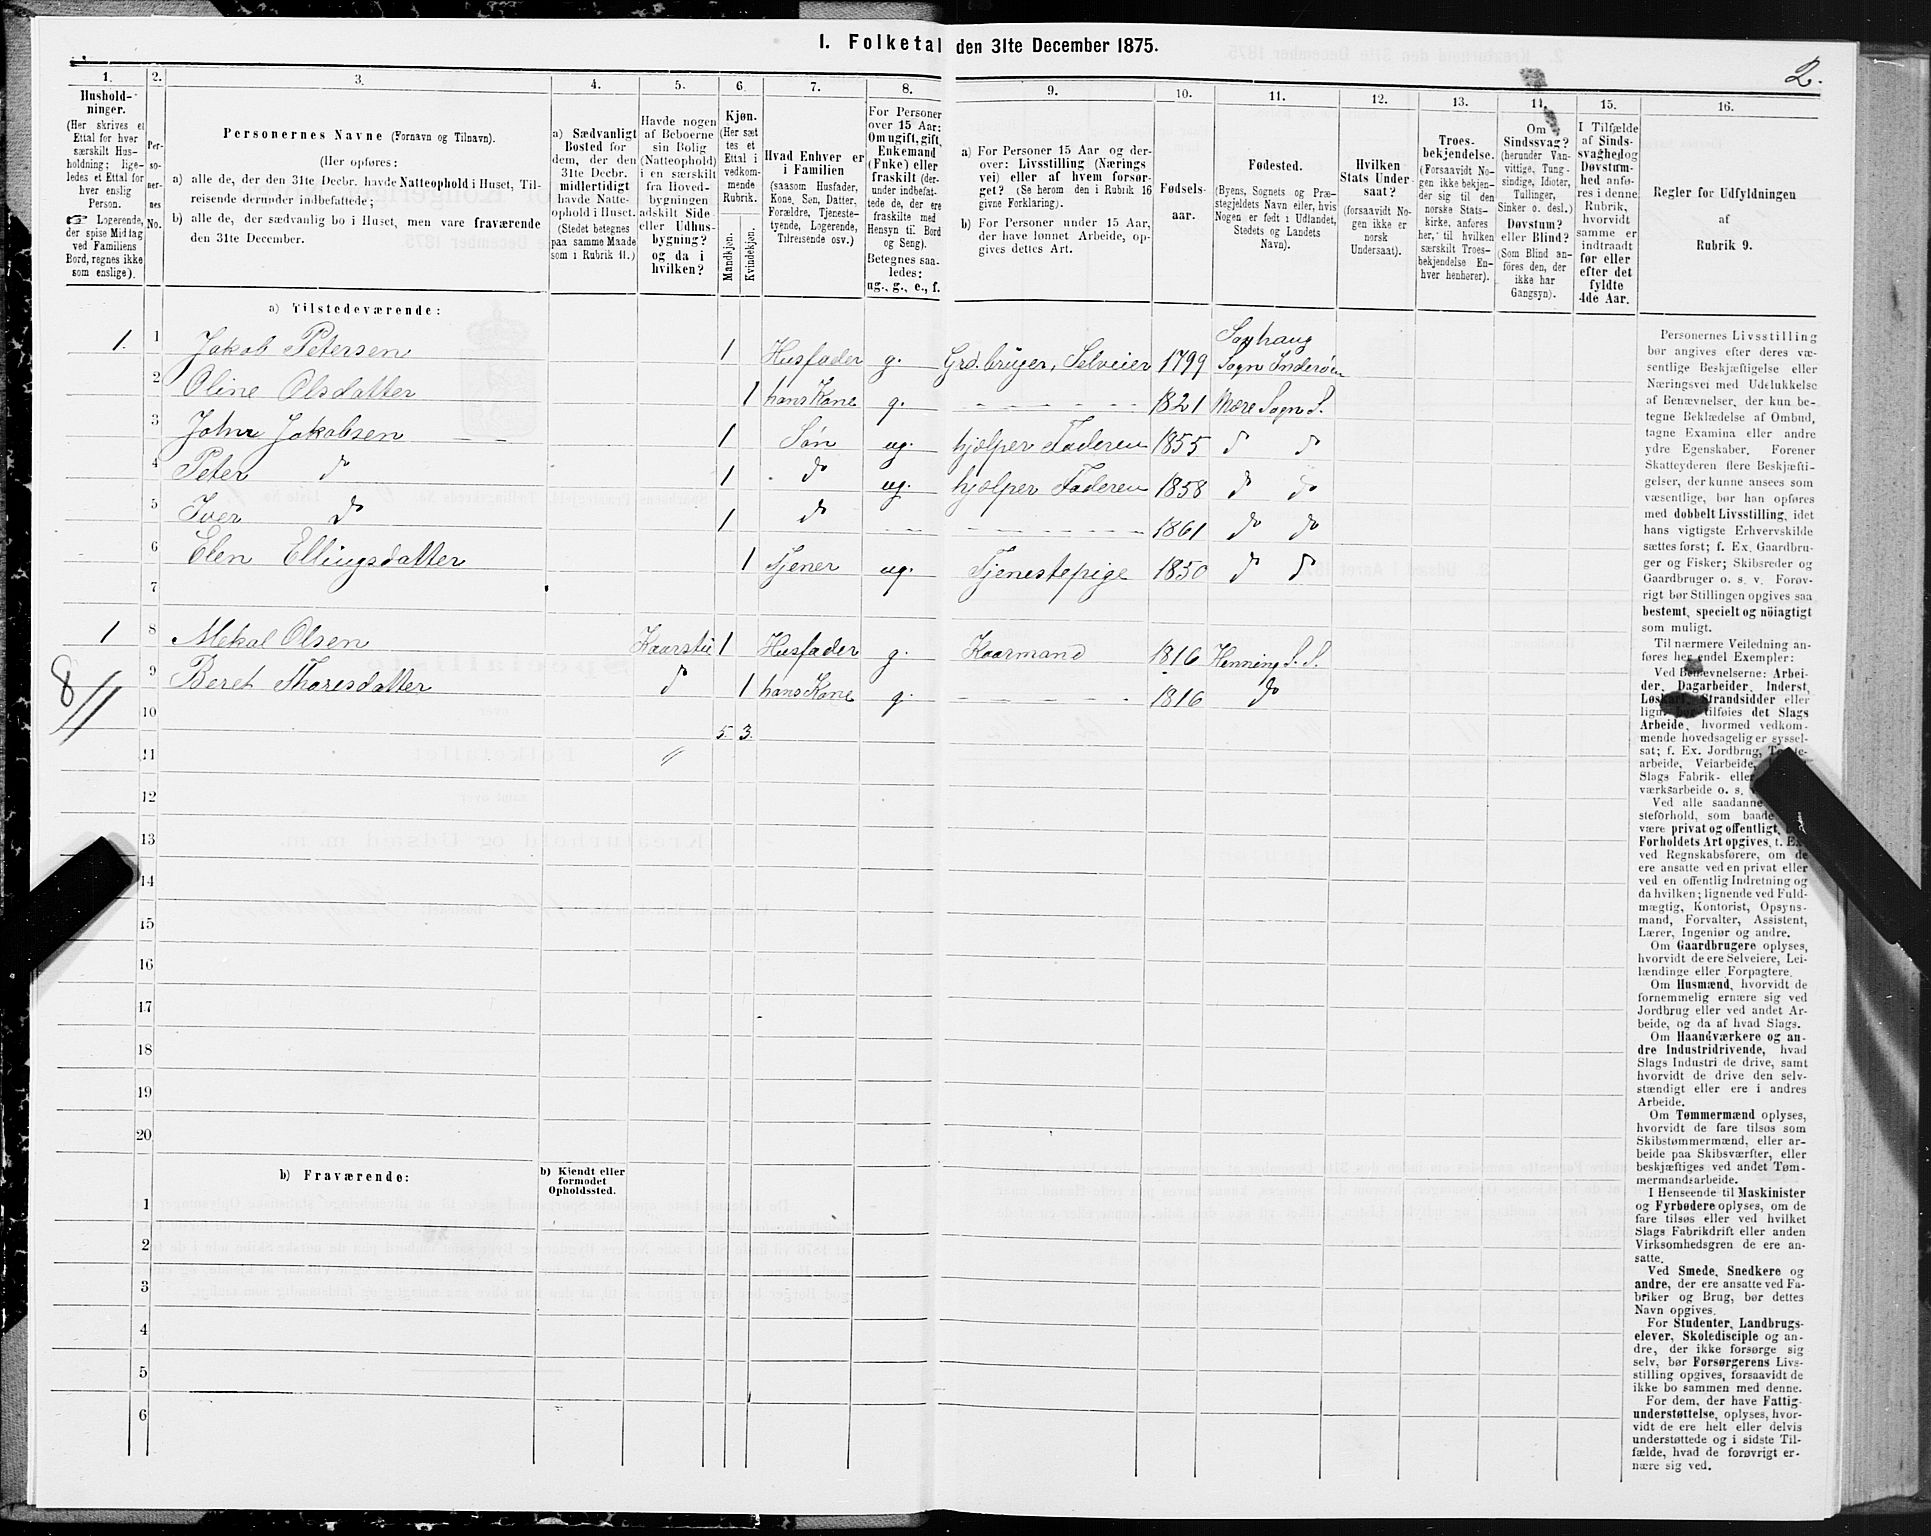 I. Folketal den 31te December 1875.
2.
1. 2. 3. 4. 5. 6. 7. 8. 9. 10. 11. 12. 13. 14. 15. 16.
Hushold-
ninger.
(Her skrives et
Ettal for hver
særskilt Hus-
holdning; lige-
ledes et Ettal for
hver enslig
Person.
☞ Logerende,
der spise Middag
ved Familiens
Bord, regnes ikke
som enslige).
Per-
so-
ner-
nes
No.
Personernes Navne (Fornavn og Tilnavn).
(Her opføres:
a) alle de, der den 31te Decbr. havde Natteophold i Huset, Til-
reisende derunder indbefattede;
b) alle de, der sædvanlig bo i Huset, men vare fraværende
den 31te December.
a) Sædvanligt
Bosted for
dem, der den
31te Decbr.
midlertidigt
havde Natte-
ophold i Huset.
(Stedet betegnes
paa samme Maade
som i Rubrik 11.)
Havde nogen
af Beboerne
sin Bolig
(Natteophold)
i en særskilt
fra Hoved-
bygningen
adskilt Side-
eller Udhus-
bygning?
og da i
hvilken?
Kjøn.
(Her sæt
tes et
Ettal i
vedkom-
mende
Rubrik.
Mandkjøn.
Kvindekjøn.
Hvad Enhver er
i Familien
(saasom Husfader,
Kone, Søn, Datter,
Forældre, Tjeneste-
tyende, Logerende,
Tilreisende osv.)
For Personer
over 15 Aar:
Om ugift, gift,
Enkemand
(Enke) eller
fraskilt (der-
under indbefat-
tede de, der ere
fraskilte med
Hensyn til Bord
og Seng).
Betegnes saa-
ledes:
ug., g., e., f.
a) For Personer 15 Aar og der-
over: Livsstilling (Nærings
vei) eller af hvem forsør-
get? (Se herom den i Rubrik 16
givne Forklaring).
b) For Personer under 15 Aar,
der have lønnet Arbeide, op-
gives dettes Art.
Fødsels-
aar.
Fødested.
(Byens, Sognets og Præ-
stegjeldets Navn eller, hvis
Nogen er født i Udlandet,
Stedets og Landets
Navn).
Hvilken
Stats Under
saat?
(forsaavidt No-
gen ikke er
norsk
Undersaat).
Troes-
bekjendelse.
(Forsaavidt No-
gen ikke bekjen-
der sig til den
norske Stats-
kirke, anføres
her, til hvilken
særskilt Troes-
bekjendelse En-
hver henhører).
Om
Sindssvag?
(herunder Van-
vittige, Tung-
sindige, Idioter,
Tullinger,
Sinker o. desl.)
Døvstum?
eller Blind?
(Som Blind an-
føres den, der
ikke har
Gangsyn).
I Tilfælde
af Sinds-
svaghed og
Døvstum-
hed anfø-
res i denne
Rubrik,
hvorvidt
samme er
indtraadt
før eller
efter det
fyldte
4de Aar.
Regler for Udfyldningen
af
Rubrik 9.
a) Tilstedeværende:
1. 1 Jakob Petersen 1 Husfader g. Grd.bruger, Selveier 1799 Sogn Inderøen
2 Oline Olsdatter 1 hans Kone g. 1821 Mære Sogn S.
3 John Jakobsen 1 Søn ug. hjelper Faderen 1855 do do
4 Peter do 1 do ug. hjelper Faderen 1858 do do
5 Iver do 1 do 1861 do do
6 Elen Ellingsdatter 1 Tjener ug. Tjenestepige 1850 do do
7
1 8 Mekal Olsen Kaarstue 1 Husfader g. Kaarmand 1816 Henning S. S.
9 Beret Thoresdatter do 1 hans Kone g. 1816 do
8//
10 5. 3.
11 //
12
13
14
15
16
17
18
19
20
b) Fraværende:
b) Kjendt eller
formodet
Opholdssted.
1
2
3
4
5
6
Personernes Livsstilling
bør angives efter deres væ-
sentlige Beskjæftigelse eller
Næringsvei med Udelukkelse
af Benævnelser, der kun be-
tegne Beklædelse af Ombud,
tagne Examina eller andre
ydre Egenskaber. Forener
Skatteyderen flere Beskjæfti-
gelser, der kunne ansees som
væsentlige, bør han opføres
med dobbelt Livsstilling, idet
hans vigtigste Erhvervskilde
sættes først; f. Ex. Gaardbru-
ger og Fisker; Skibsreder og
Gaardbruger o. s. v. Forøv-
rigt bør Stillingen opgives saa
bestemt, specielt og nöiagtigt
som muligt.
Til nærmere Veiledning an-
føres her endel Exempler:
Ved Benævnelserne: Arbei-
der, Dagarbeider, Inderst,
Løskarl, Strandsidder eller
lign. bør tilføies det Slags
Arbeide, hvormed vedkom-
mende hovedsagelig er syssel-
sat; f. Ex. Jordbrug,
arbeide, Veiarbeide,
Slags Fabrik- eller
værksarbeide o. s.
Ved alle saadanne
steforhold, som baade
være privat og offentligt,
Forholdets Art opgives, t. Ex.
ved Regnskabsførere, om de
ere ansatte ved en privat eller
ved en offentlig Indretning og
da hvilken; lignende ved Fuld-
mægtig, Kontorist, Opsyns-
mand, Forvalter, Assistent,
Lærer, Ingeniør og andre.
Om Gaardbrugere oplyses,
hvorvidt de ere Selveiere, Lei-
lændinge eller Forpagtere.
Om Husmænd, hvorvidt de
fornemmelig ernære sig ved
Jordbrug eller ved andet Ar-
beide, og da af hvad Slags.
Om Haandværkere og an-
dre Industridrivende, hvad
Slags Industri de drive, samt
hvorvidt de drive den selv-
stændigt eller ere i andres
Arbeide.
Om Tømmermænd oplyses,
hvorvidt de fare tilsøs som
Skibstømmermænd, eller ar-
beide paa Skibsværfter, eller
beskjæftiges ved andet Tøm-
mermandsarbeide.
I Henseende til Maskinister
og Fyrbødere oplyses, om de
fare tilsøs eller ved hvilket
Slags Fabrikdrift eller anden
Virksomhedsgren de ere an-
satte.
Ved Smede, Snedkere og
andre, der ere ansatte ved Fa-
briker og Brug, bør dettes
Navn opgives.
For Studenter, Landbrugs-
elever, Skoledisciple og an-
dre, der ikke forsørge sig
selv, bør Forsørgerens Livs-
stilling opgives, forsaavidt de
ikke bo sammen med denne.
For dem, der have Fattig-
understøttelse, oplyses, hvor-
vidt de ere helt eller delvis
understøttede og i sidste Til-
fælde, hvad de forøvrigt er-
nære sig ved.